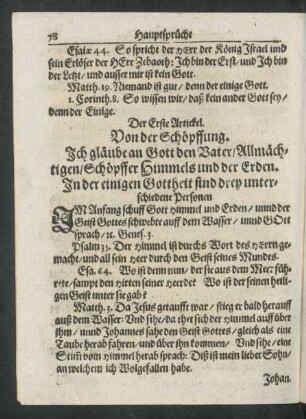 78 Hauptsprüche
Esaiæ 44. So spricht der HErr der König Israel und
sein Erlöser der HErr Zebaoth: Ich bin der Erst/ und Ich bin
der Letzt/ und ausser mir ist kein Gott.
Matth. 19. Niemand ist gut/ denn der einige Gott.
1. Corinth. 8. So wissen wir/ daß kein ander Gott sey/
denn der Einige.
Der Erste Artickel.
Von der Schöpffung.
Ich gläube an Gott den Vater/ Allmäch-
tigen/ Schöpffer Himmels und der Erden.
In der einigen Gottheit sind drey unter-
schiedene Personen
IM Anfang schuff Gott Himmel und Erden/ unnd der
Geist Gottes schwebte auff dem Wasser/ unnd GOtt
sprach/ ꝛc. Genes. 3.
Psalm 33. Der Himmel ist durchs Wort des HErrn ge-
macht/ und all sein Heer durch den Geist seines Mundes.
Esa. 64. Wo ist denn nun/ der sie aus dem Meer füh-
rte/ sampt den Hirten seiner Heerde? Wo ist der seinen heili-
gen Geist unter sie gab?
Matth. 3. Da Jesus getaufft war/ stieg er bald herauff
auß dem Wasser: Und sihe/ da thet sich der Himmel auff über
ihm/ unnd Johannes sahe den Geist Gottes/ gleich als eine
Taube herab fahren/ und über ihn kommen/ Und sihe/ eine
Stim̃ vom Himmel herab sprach: Diß ist mein lieber Sohn/
an welchem ich Wolgefallen habe.
Johan.